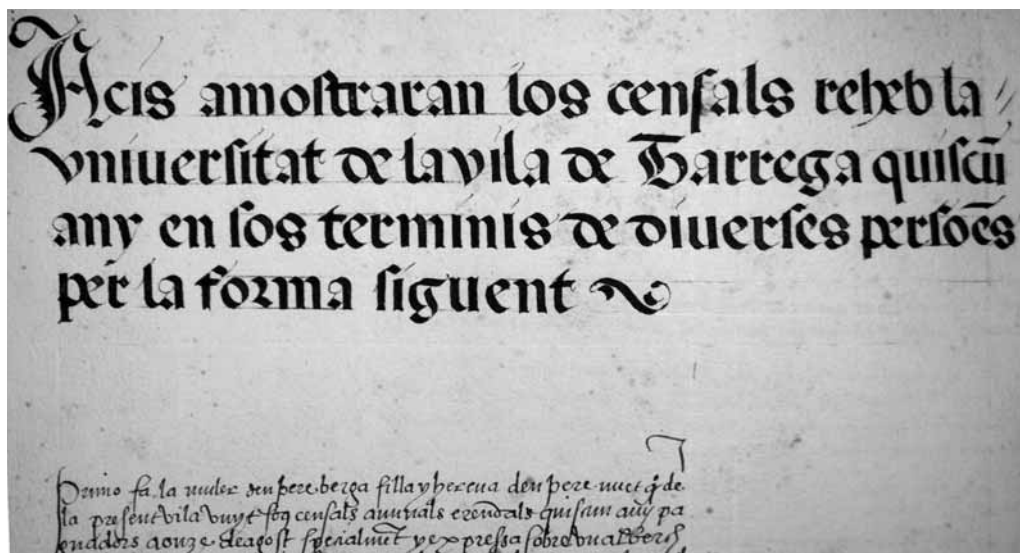 Acis amostraran los censals reheb la
vniuersitat de la vila de Tarrega quiscũ
any en sos terminis de diuerses persões
per la forma siguent
Primo fa la muler den pere berga filla y hereua den pere
la present vila vuyt sous censals annuals e rendals quiscun any pa
gnadors a onze de agost specialmẽt y expressa sobre vn alberch